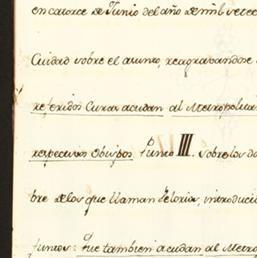 en catorce de Junio del año de mil setec
Cuidad sobre el asunto, reagravandose
referidos Curas acudan al Metropolita
respectivos Obispos. Punto III. sobre los do
bre de los que llaman pelorios, introduci
juntos: que tambien acudan al Metro